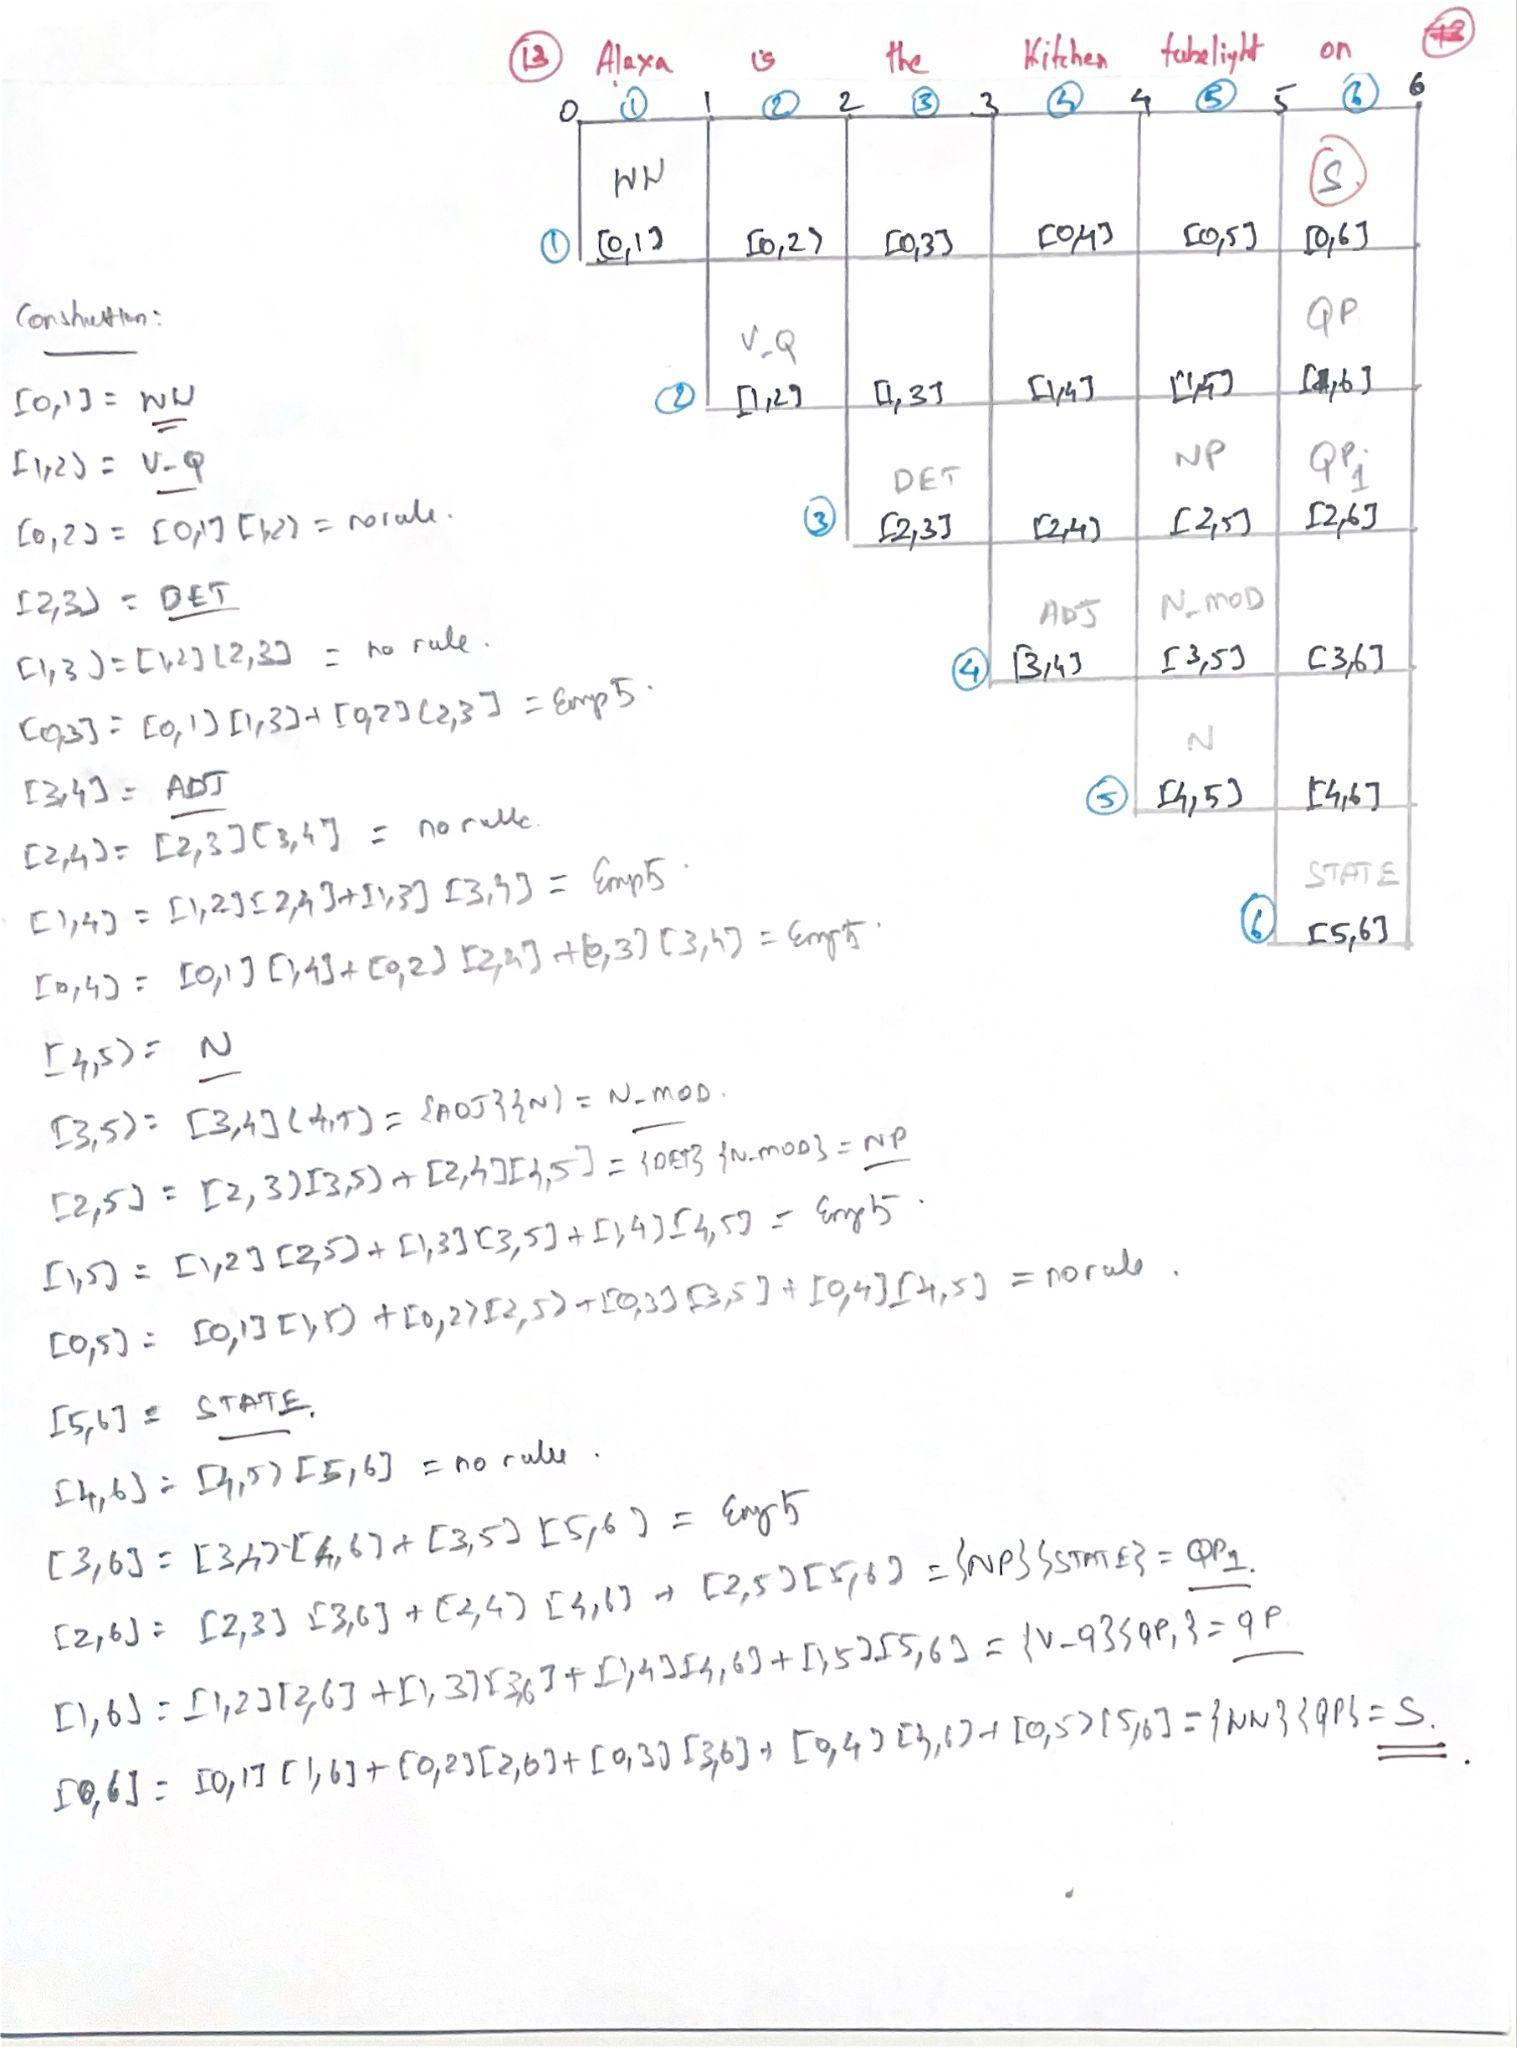 13 Alaxa is the Kitchen tubelight on
0 1 1 2 2 3 3 4 4 5 5 6 6
NN S
1 [0,1] [0,2] [0,3] [0,4] [0,5] [0,6]
V_Q QP
2 [1,2] [1,3] [1,4] [1,5] [1,6]
DET NP QP1
3 [2,3] [2,4] [2,5] [2,6]
ADJ N_MOD
4 [3,4] [3,5] [3,6]
N
5 [4,5] [4,6]
STATE
6 [5,6]
Construction:
[0,1] = NN
[1,2] = V-Q
[0,2] = [0,1] [1,2] = no rule.
[2,3] = DET
[1,3] = [1,2] [2,3] = no rule.
[0,3] = [0,1] [1,3] + [0,2] [2,3] = Empty.
[3,4] = ADJ
[2,4] = [2,3] [3,4] = no rule.
[1,4] = [1,2] [2,4] + [1,3] [3,4] = Empty.
[0,4] = [0,1] [1,4] + [0,2] [2,4] + [0,3] [3,4] = Empty.
[4,5] = N
[3,5] = [3,4] [4,5] = {ADJ} {N} = N_MOD.
[2,5] = [2,3] [3,5] + [2,4] [4,5] = {DET} {N_MOD} = NP
[1,5] = [1,2] [2,5] + [1,3] [3,5] + [1,4] [4,5] = Empty.
[0,5] = [0,1] [1,5] + [0,2] [2,5] + [0,3] [3,5] + [0,4] [4,5] = no rule.
[5,6] = STATE.
[4,6] = [4,5] [5,6] = no rule.
[3,6] = [3,4] [4,6] + [3,5] [5,6] = Empty
[2,6] = [2,3] [3,6] + [2,4] [4,6] + [2,5] [5,6] = {NP} {STATE} = QP1.
[1,6] = [1,2] [2,6] + [1,3] [3,6] + [1,4] [4,6] + [1,5] [5,6] = {V-Q} {QP1} = QP
[0,6] = [0,1] [1,6] + [0,2] [2,6] + [0,3] [3,6] + [0,4] [4,6] + [0,5] [5,6] = {NN} {QP} = S.